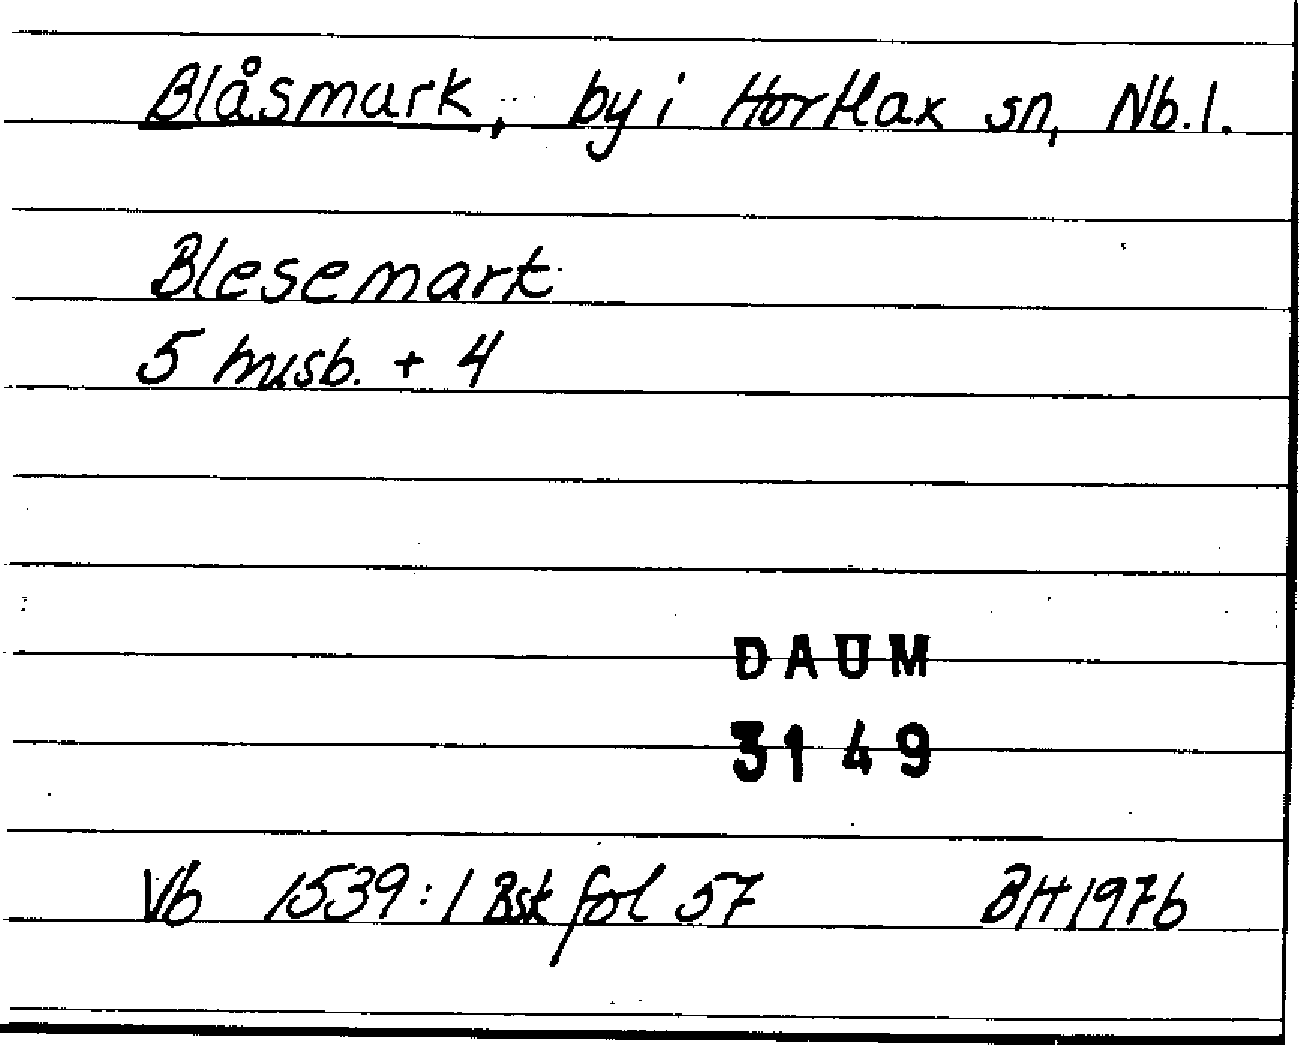 Blåsmark, by i Hortlax sn, Nb. l.
Blesemark
5 husb. + 4
DAUM
3149
Vb 1539:1 Bsk fol 57 BH 1976